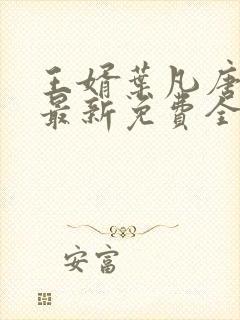 王婿叶凡唐
最新免费全
安富